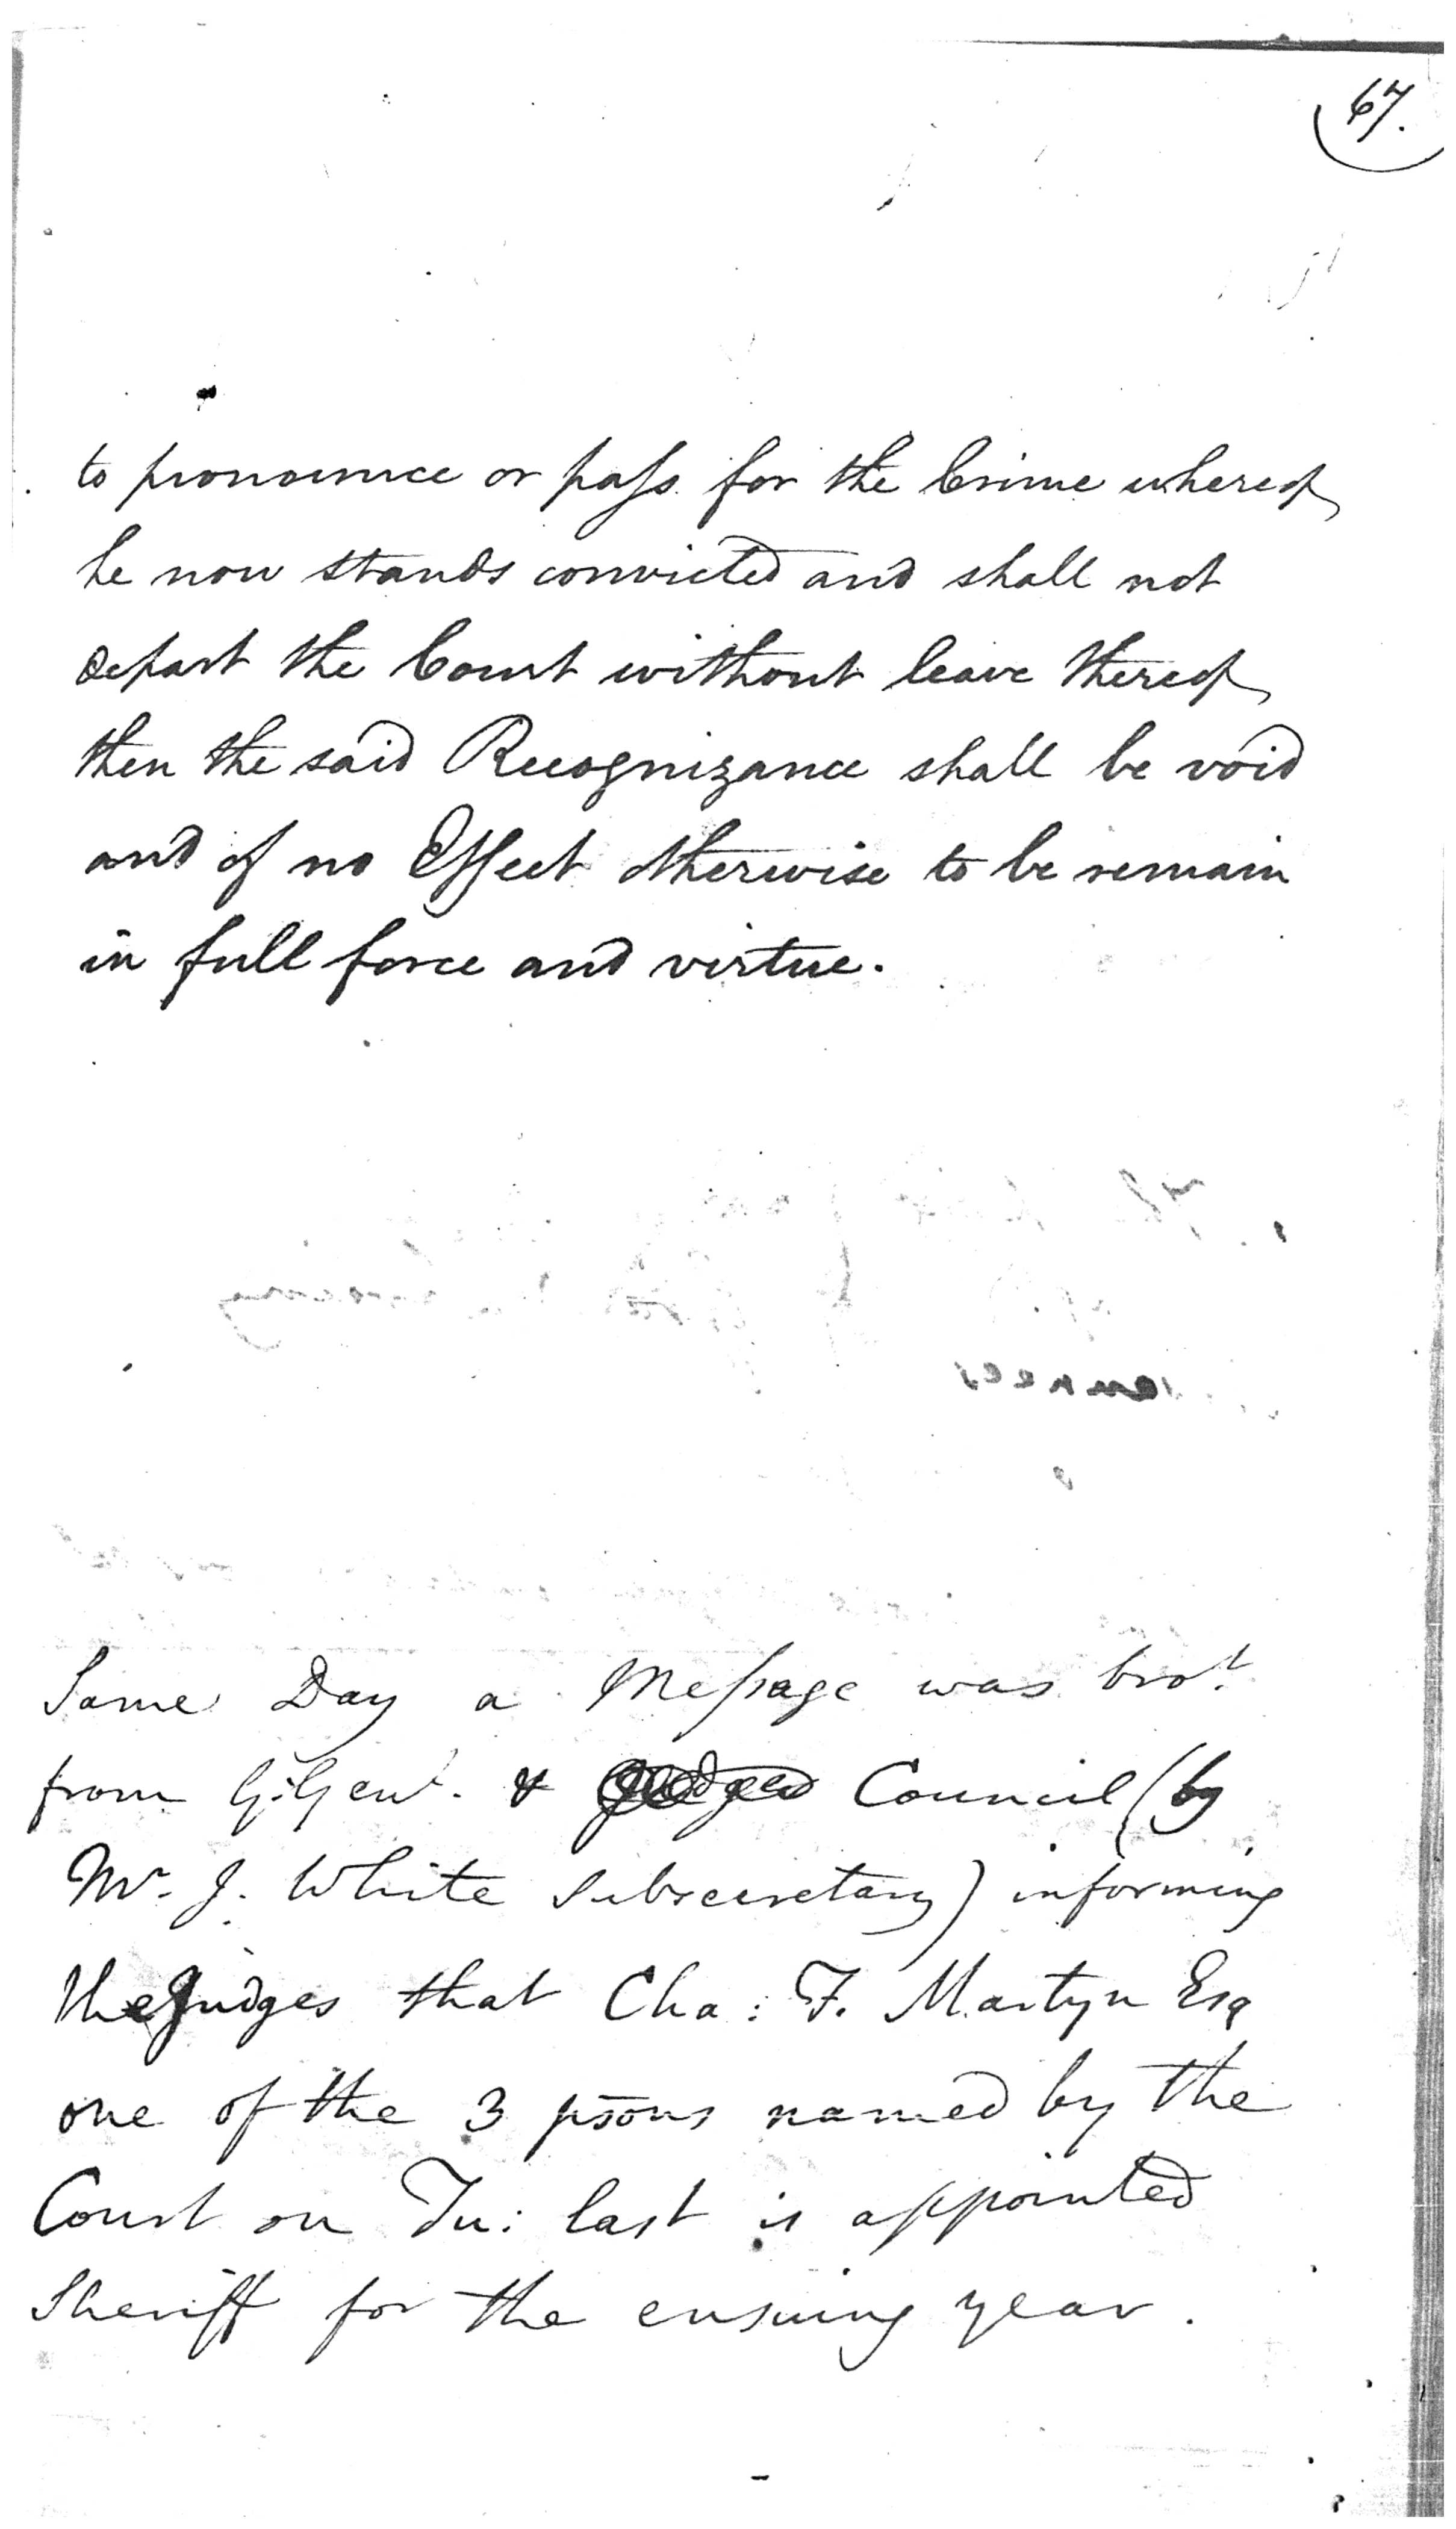 67.
to pronounce or pass for the Crime whereof
he now stands convicted and shall not
depart the Court without leave thereof
then the said Recognizance shall be void
and of no Effect otherwise to be remain
in full force and virtue.
Same Day a Message was bro.t
from G: Gen.l & Council (by
Mr. J. White Subsecretary) informing
the Judges that Cha: F. Martyn Esq
one of the 3 psons named by the
Court on Tu: last is appointed
Sheriff for the ensuing year.